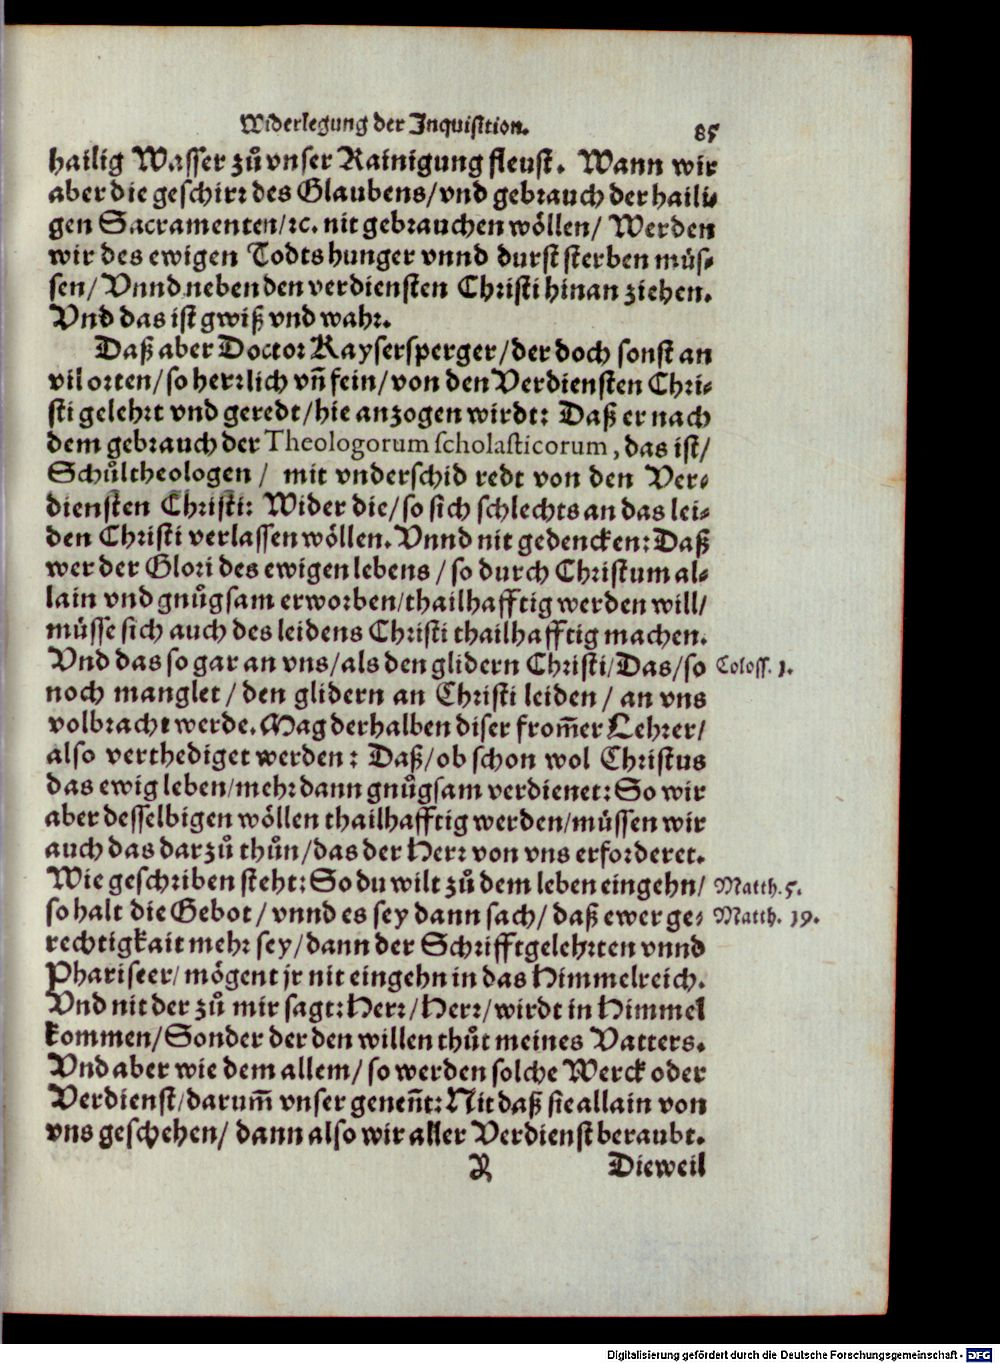 Widerlegung der Inquisition. 85
hailig Wasser zů vnser Rainigung fleust. Wann wir
aber die geschirꝛ des Glaubens/vnd gebꝛauch der haili⸗
gen Sacramenten/ꝛc. nit gebꝛauchen wöllen/ Werden
wir des ewigen Todts hunger vnnd durst sterben müs⸗
sen/ Vnnd neben den verdiensten Chꝛisti hinan ziehen.
Vnd das ist gwiß vnd wahꝛ.
Daß aber Doctoꝛ Kaysersperger/der doch sonst an
vil oꝛten/so herꝛlich vn̄ fein/von den Verdiensten Chꝛi⸗
sti gelehꝛt vnd geredt/hie anzogen wirdt: Daß er nach
dem gebꝛauch der Theologorum scholasticorum, das ist/
Schůltheologen / mit vnderschid redt von den Ver⸗
diensten Chꝛisti: Wider die/so sich schlechts an das lei⸗
den Chꝛisti verlassen wöllen. Vnnd nit gedencken: Daß
wer der Gloꝛi des ewigen lebens / so durch Chꝛistum al⸗
lain vnd gnůgsam erwoꝛben/thailhafftig werden will/
müsse sich auch des leidens Chꝛisti thailhafftig machen.
Vnd das so gar an vns/als den glidern Chꝛisti/Das/so Coloss. 1.
noch manglet / den glidern an Chꝛisti leiden / an vns
volbꝛacht werde. Mag derhalben diser from̄er Lehꝛer/
also verthediget werden: Daß/ob schon wol Chꝛistus
das ewig leben/mehꝛ dann gnůgsam verdienet: So wir
aber desselbigen wöllen thailhafftig werden/müssen wir
auch das darzů thůn/das der Herꝛ von vns erfoꝛderet.
Wie geschꝛiben steht: So du wilt zů dem leben eingehn/ Matth. 5.
so halt die Gebot / vnnd es sey dann sach/ daß ewer ge⸗ Matth. 19.
rechtigkait mehꝛ sey/dann der Schꝛifftgelehꝛten vnnd
Phariseer/ mögent jr nit eingehn in das Himmelreich.
Vnd nit der zů mir sagt: Herꝛ/ Herꝛ/ wirdt in Himmel
kommen/Sonder der den willen thůt meines Vatters.
Vnd aber wie dem allem/ so werden solche Werck oder
Verdienst/darum̄ vnser genen̄t: Nit daß sie allain von
vns geschehen/ dann also wir aller Verdienst beraubt.
Y Dieweil
Digitalisierung gefördert durch die Deutsche Forschungsgemeinschaft - DFG